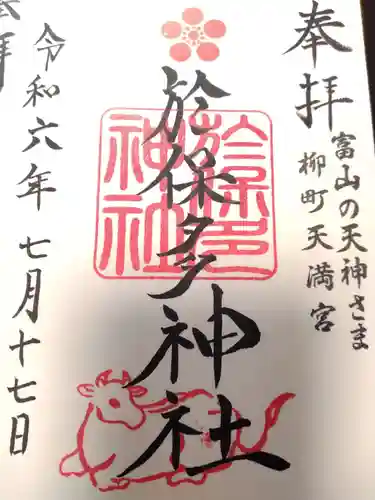 奉拝
富山の天神さま
柳町天満宮
於保多神社
於保多神社
令和六年七月十七日
拝